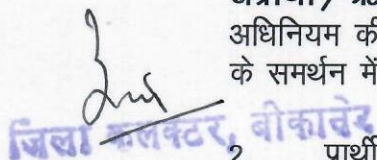 अधिनियम की
के समर्थन में
जिला कलक्टर, बीकानेर
2 पार्थी